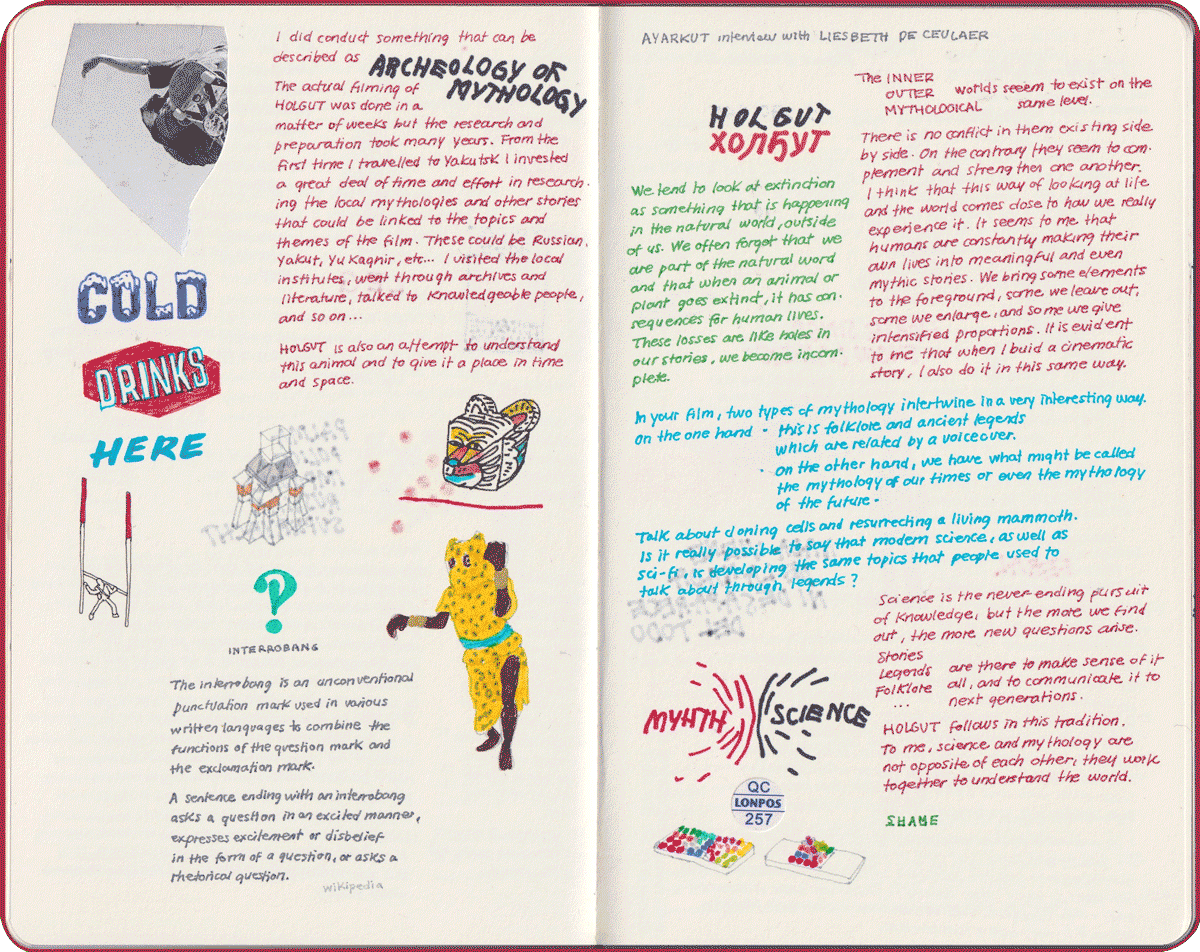 I did conduct something that can be
described as ARCHEOLOGY OF
MYTHOLOGY
The actual filming of
HOLGUT was done in a
matter of weeks but the research and
preparation took many years. From the
first time I travelled to Yakutsk I invested
a great deal of time and effort in research.
ing the local mythologies and other stories
that could be linked to the topics and
themes of the film. These could be Russian,
Yakut, Yukagnir, etc... I visited the local
institutes, went through archives and
literature, talked to knowledgeable people,
and so on...
HOLGUT is also an attempt to understand
this animal and to give it a place in time
and space.
COLD
DRINKS
HERE
?
INTERROBANG
The interrobang is an unconventional
punctuation mark used in various
written languages to combine the
functions of the question mark and
the exclamation mark.
A sentence ending with an interrobang
asks a question in an excited manner,
expresses excitement or disbelief
in the form of a question, or asks a
rhetorical question.
Wikipedia
AYARKUT interview with LIESBETH DE CEULAER
HOLGUT
ХОЛҔУТ
We tend to look at extinction
as something that is happening
in the natural world, outside
of us. We often forget that we
are part of the natural word
and that when an animal or
plant goes extinct, it has con.
sequences for human lives.
These losses are like holes in
our stories, we become incom.
plete.
The INNER
OUTER worlds seeem to exist on the
MYTHOLOGICAL same level.
There is no conflict in them existing side
by side. On the contrary they seem to com.
plement and strengthen one another.
I think that this way of looking at life
and the world comes close to how we really
experience it. It seems to me that
humans are constantly making their
own lives into meaningful and even
mythic stories. We bring some elements
to the foreground, some we leave out,
some we enlarge, and some we give
intensified proportions. It is evident
to me that when I buid a cinematic
story, I also do it in this same way.
In your film, two types of mythology intertwine in a very interesting way.
on the one hand - this is folklore and ancient legends
which are related by a voiceover.
- on the other hand, we have what might be called
the mythology of our times or even the mythology
of the future -
Talk about cloning cells and resurrecting a living mammoth.
Is it really possible to say that modern science, as well as
sci-fi, is developing the same topics that people used to
talk about through legends?
Science is the never ending pursuit
of knowledge, but the more we find
out, the more new questions arise.
Stories
Legends are there to make sense of it
Folklore all, and to communicate it to
... next generations.
HOLGUT follows in this tradition.
To me, science and mythology are
not opposite of each other, they work
together to understand the world.
MYHTH SCIENCE
QC
LONPOS
257
SHAME